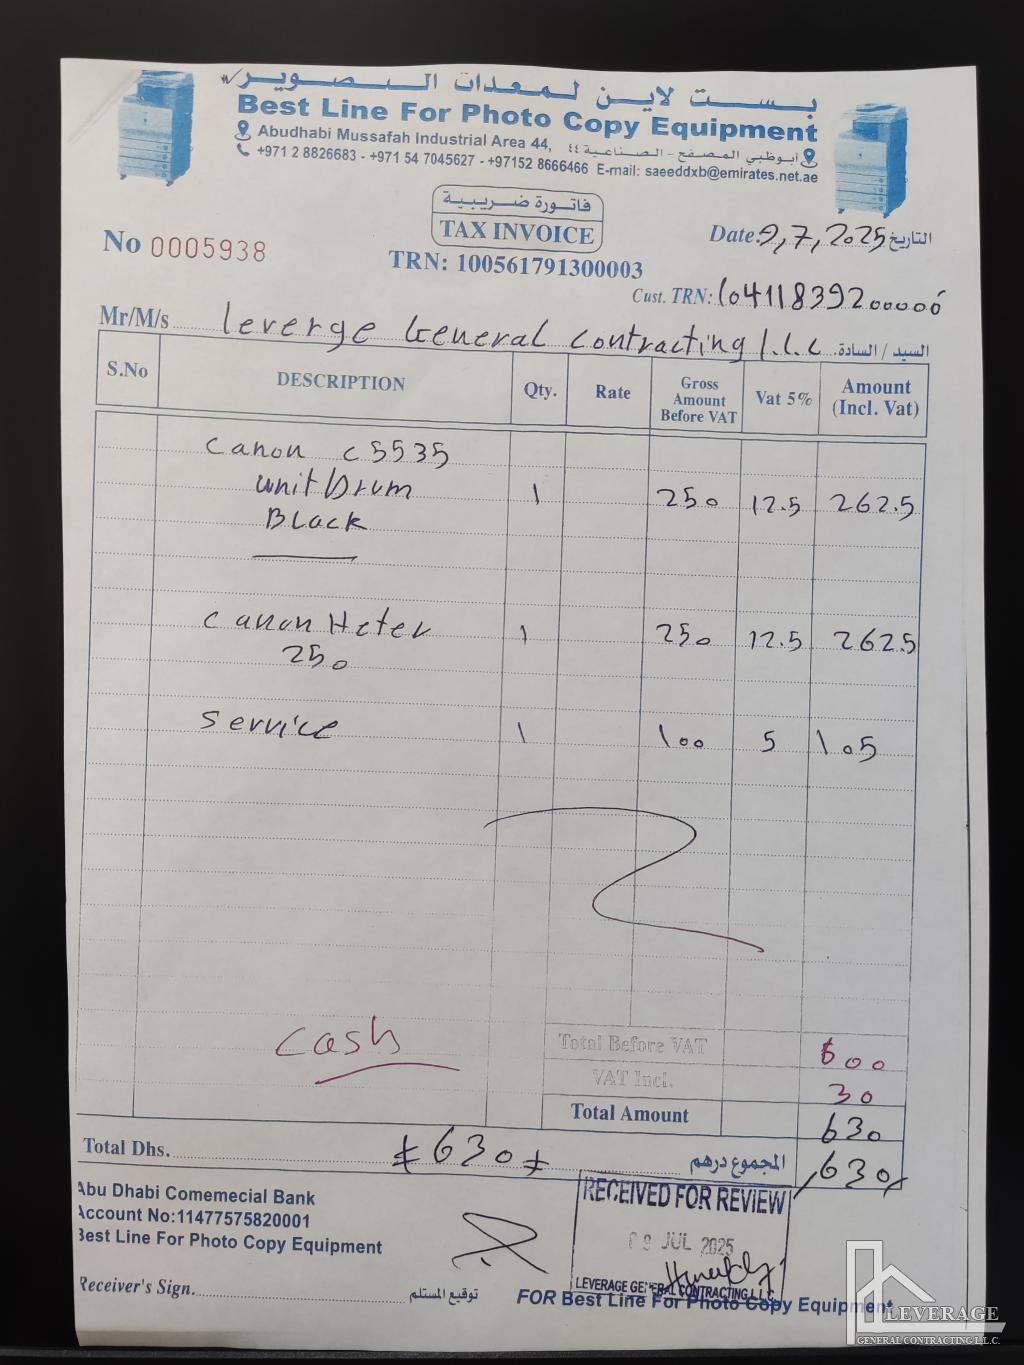 بست لاين لمعدات التصوير
Best Line For Photo Copy Equipment
Abudhabi Mussafah Industrial Area 44, أبوظبي المصفح - الصناعية ٤٤
+971 2 8826683 - +971 54 7045627 - +97152 8666466 E-mail: saeeddxb@emirates.net.ae
فاتورة ضريبية
TAX INVOICE
No 0005938
Date: 9,7,2025 التاريخ
TRN: 100561791300003
Cust. TRN: 10411839200000
Mr/M/s Leverge General Contracting l.l.c السيد / السادة
S.No DESCRIPTION Qty. Rate Gross Amount Before VAT Vat 5% Amount (Incl. Vat)
Canon C5535
unit Drum 1 250 12.5 262.5
Black
Canon Heter 1 250 12.5 262.5
250
Service 1 100 5 105
Cash
Total Before VAT 600
VAT Incl. 30
Total Amount 630
Total Dhs. 630 المجموع درهم 630
Abu Dhabi Comemecial Bank
Account No:11477575820001
Best Line For Photo Copy Equipment
RECEIVED FOR REVIEW
09 JUL 2025
LEVERAGE GENERAL CONTRACTING L.L.C.
Receiver's Sign. توقيع المستلم
FOR Best Line For Photo Copy Equipment
LEVERAGE
GENERAL CONTRACTING L.L.C.